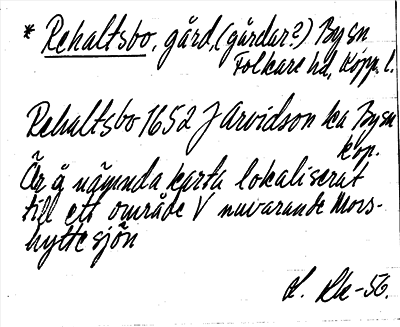 * Rehaltsbo, gård, (gårdar?) By sn
Folkare hd, Kopp. l.
Rehaltsbo 1652 J Arvidson ka By sn
kop.
Är å nämnda karta lokaliserat
till ett område V nuvarande Mors-
hyttesjön
-56.